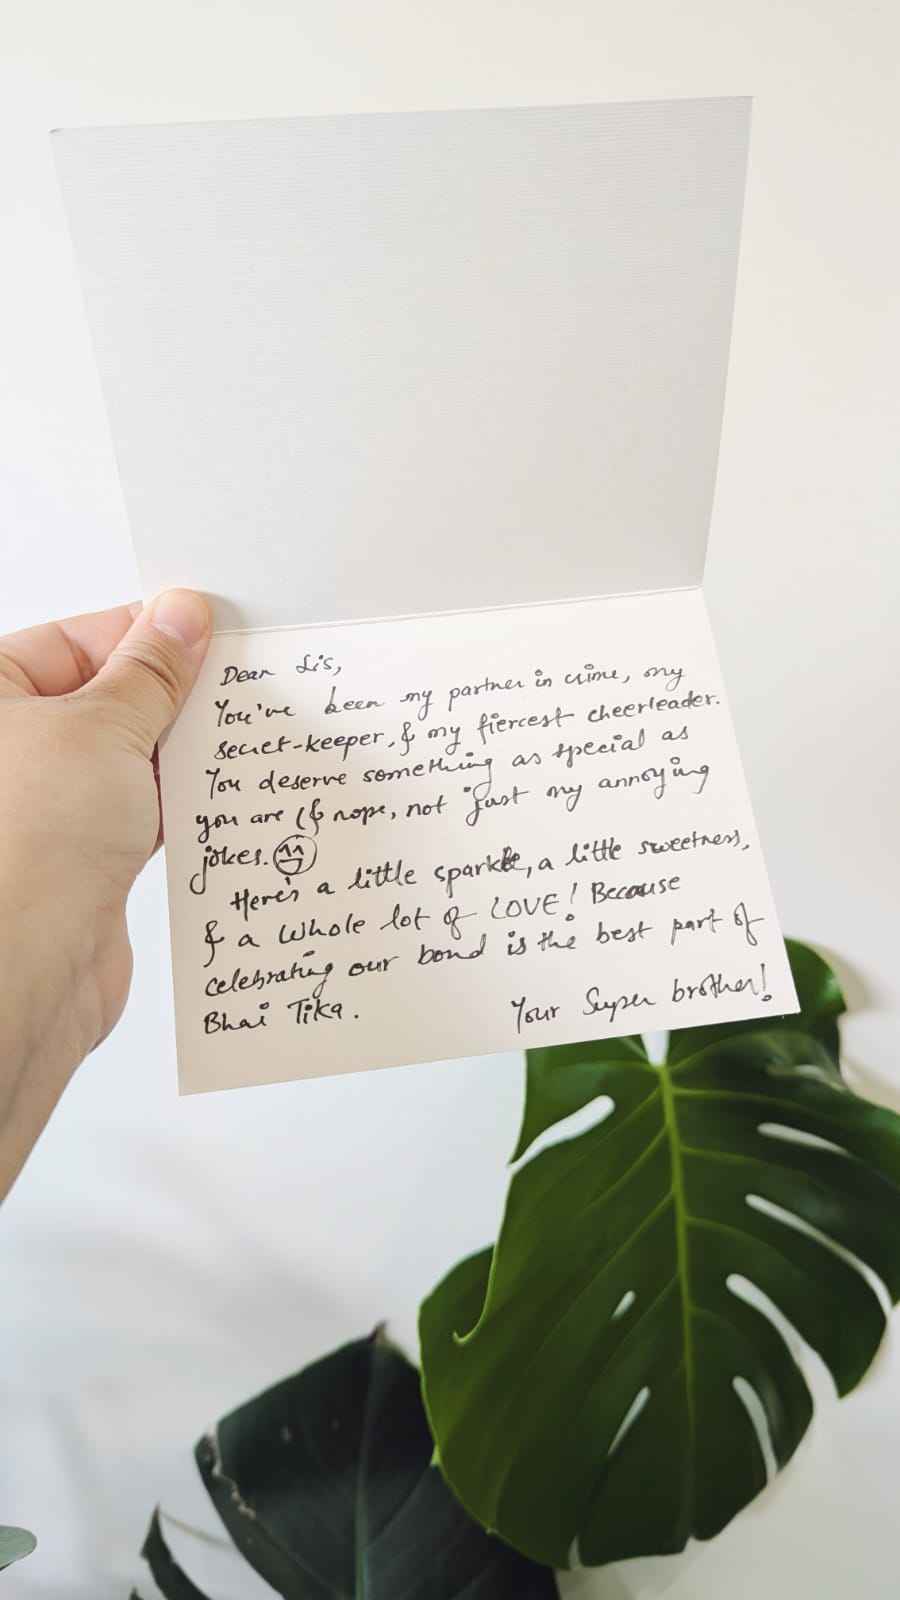 Dear Sis,
You've been my partner in crime, my
secret-keeper, & my fiercest cheerleader.
You deserve something as special as
you are (& nope, not just my annoying
jokes.
Here's a little sparkle, a little sweetness,
& a whole lot of LOVE! Because
celebrating our bond is the best part of
Bhai Tika.
Your Super brother!